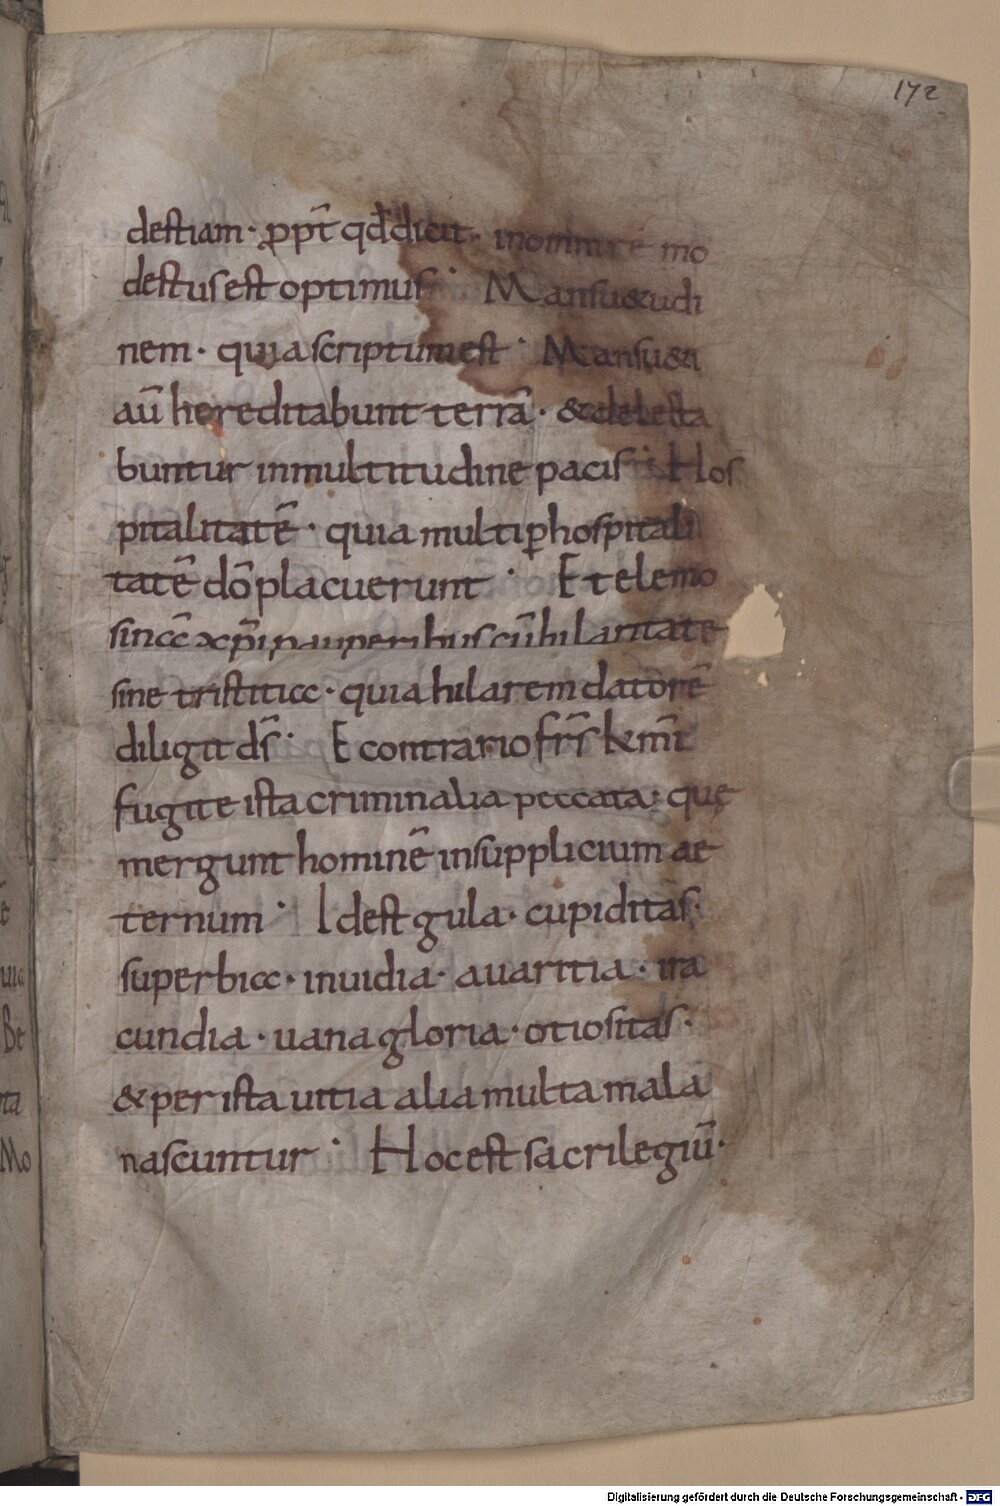 172
destiam · ꝓpt̄ qđ dicit · in omni re mo
destus est optimus · Mansu&udi
nem · quia scriptum est · Mansu&i
aū hereditabunt terrā · &delecta
buntur in multitudine pacis · Hos
pitalitatē · quia multi ꝑ hospitali
tatē dō placuerunt · Et elemo
sinā xp̄i pauperibus cū hilaritate
sine tristitia · quia hilarem datorē
diligit ds̄ · E contrario frs̄ km̄i
fugite ista criminalia peccata · quę
mergunt hominē in supplicium ae
ternum · Id est gula · cupiditas ·
superbia · inuidia · auaritia · ira
cundia · uana gloria · otiositas ·
& per ista uitia alia multa mala
nascuntur · Hoc est sacrilegiū ·
Digitalisierung gefördert durch die Deutsche Forschungsgemeinschaft - DFG